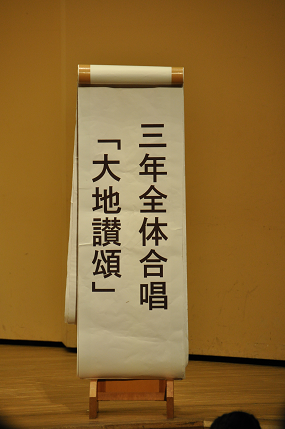 三年全体合唱
「大地讃頌」